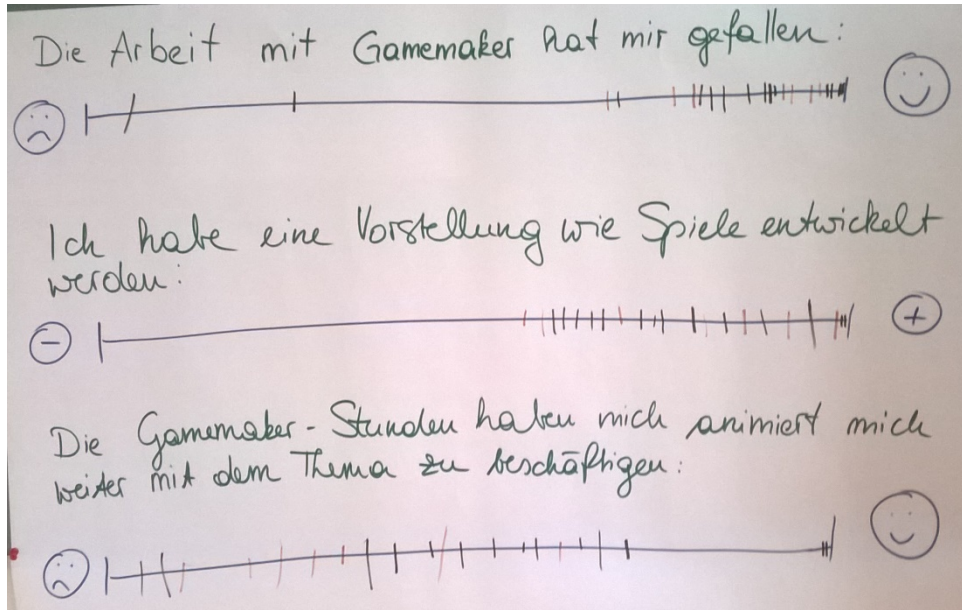 Die Arbeit mit Gamemaker hat mir gefallen:
Ich habe eine Vorstellung wie Spiele entwickelt
werden:
- +
Die Gamemaker-Stunden haben mich animiert mich
weiter mit dem Thema zu beschäftigen: